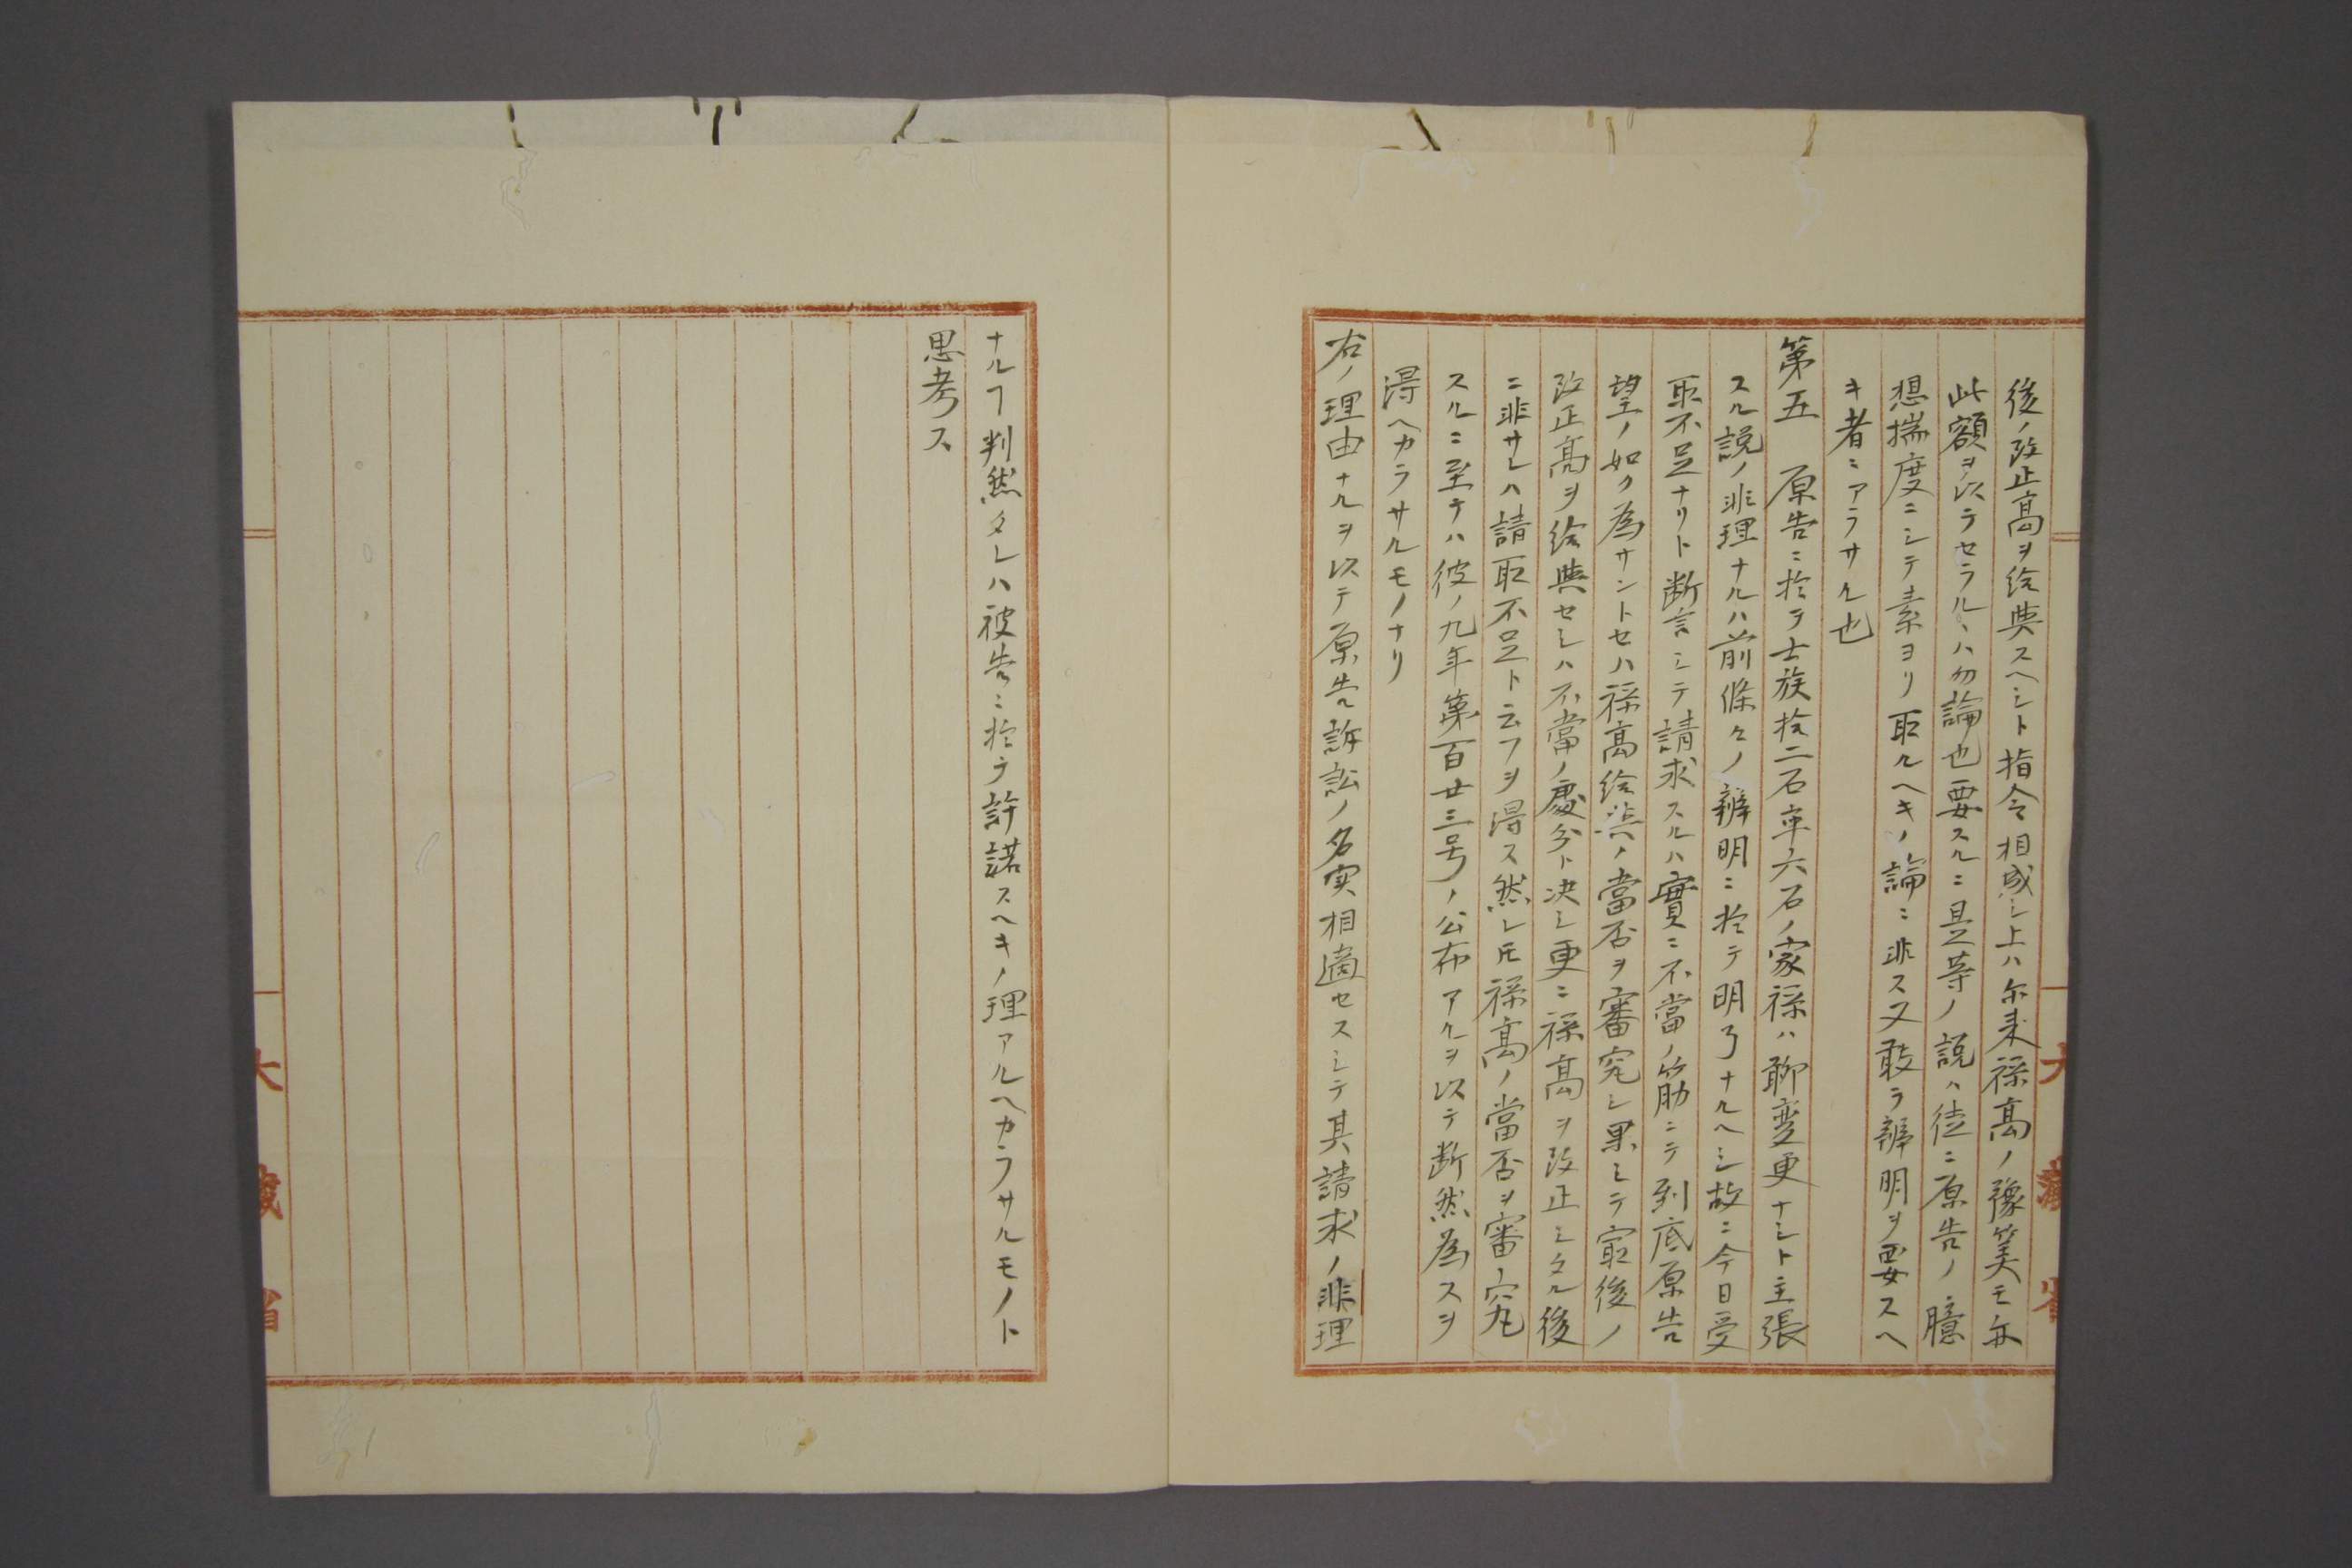 後ノ改正高ヲ給典スヘシト指令相成シ上ハ尓来禄高ノ豫筭モ亦
此額ヲ以テセラルヽハ勿論也要スルニ是等ノ説ハ徒ニ原告ノ臆
想揣度ニシテ素ヨリ取ルヘキノ論ニ非ス又敢テ辨明ヲ要スヘ
キ者ニアラサル也
第五 原告ニ於テ士族拾二石卒六石ノ家禄ハ聊変更ナシト主張
スル説ノ非理ナルハ前條々ノ辨明ニ於テ明了ナルヘシ故ニ今日受
取不足ナリト断言シテ請求スルハ實ニ不當ノ筋ニテ到底原告
望ノ如ク為サントセハ禄高給與ノ當否ヲ審究シ果シテ最後ノ
改正高ヲ給與セシハ不當ノ處分ト决シ更ニ禄高ヲ改正シタル後
ニ非サレハ請取不足ト云フヲ得ス然レ圧禄高ノ當否ヲ審究
スルニ至テハ彼ノ九年第百廿三号ノ公布アルヲ以テ断然為スヲ
得ヘカラサルモノナリ
右ノ理由ナルヲ以テ原告訴訟ノ名実相適セスシテ其請求ノ非理
ナルヿ判然タレハ被告ニ於テ許諾スヘキノ理アルヘカラサルモノト
思考ス
大藏省
大藏省